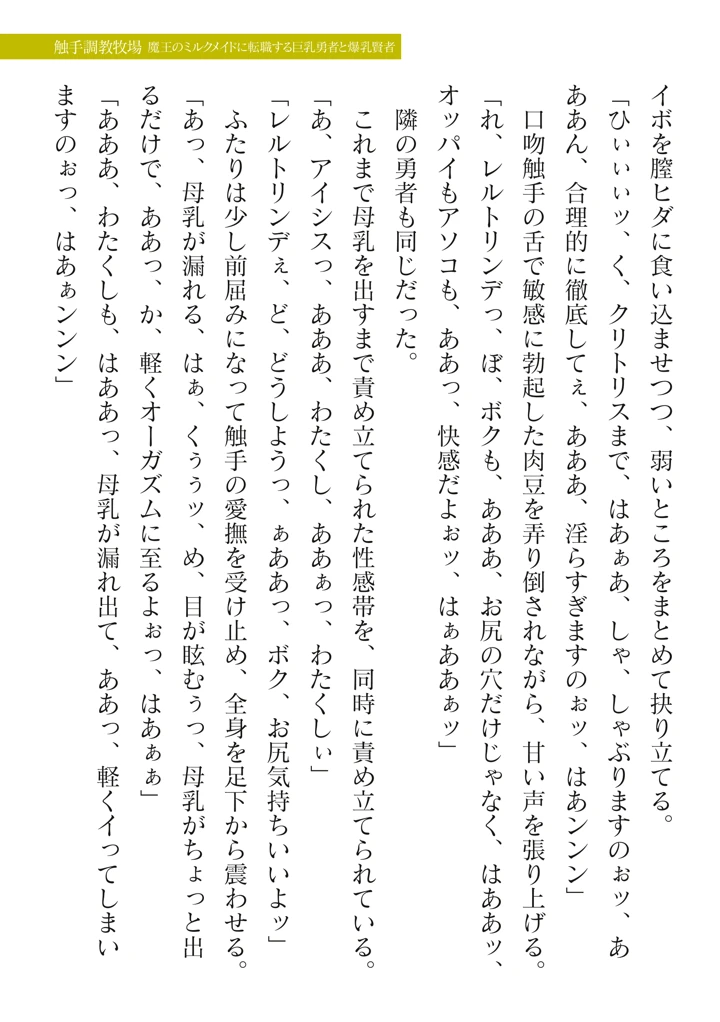 触手調教牧場 魔王のミルクメイドに転職する巨乳勇者と爆乳賢者
イボを膣ヒダに食い込ませつつ、弱いところをまとめて抉り立てる。
「ひぃぃぃッ、く、クリトリスまで、はあぁあ、しゃ、しゃぶりますのぉッ、あ
ああん、合理的に徹底してぇ、あああ、淫らすぎますのぉッ、はあンンン」
口吻触手の舌で敏感に勃起した肉豆を弄り倒されながら、甘い声を張り上げる。
「れ、レルトリンデっ、ぼ、ボクも、あああ、お尻の穴だけじゃなく、はああッ、
オッパイもアソコも、ああっ、快感だよぉッ、はぁああぁッ」
隣の勇者も同じだった。
これまで母乳を出すまで責め立てられた性感帯を、同時に責め立てられている。
「あ、アイシスっ、あああ、わたくし、ああぁっ、わたくしぃ」
「レルトリンデぇ、ど、どうしようっ、ぁああっ、ボク、お尻気持ちいいよッ」
ふたりは少し前屈みになって触手の愛撫を受け止め、全身を足下から震わせる。
「あっ、母乳が漏れる、はぁ、くぅぅッ、め、目が眩むぅっ、母乳がちょっと出
るだけで、ああっ、か、軽くオーガズムに至るよぉっ、はあぁぁ」
「あああ、わたくしも、はああっ、母乳が漏れ出て、ああっ、軽くイってしまい
ますのぉっ、はあぁンンン」